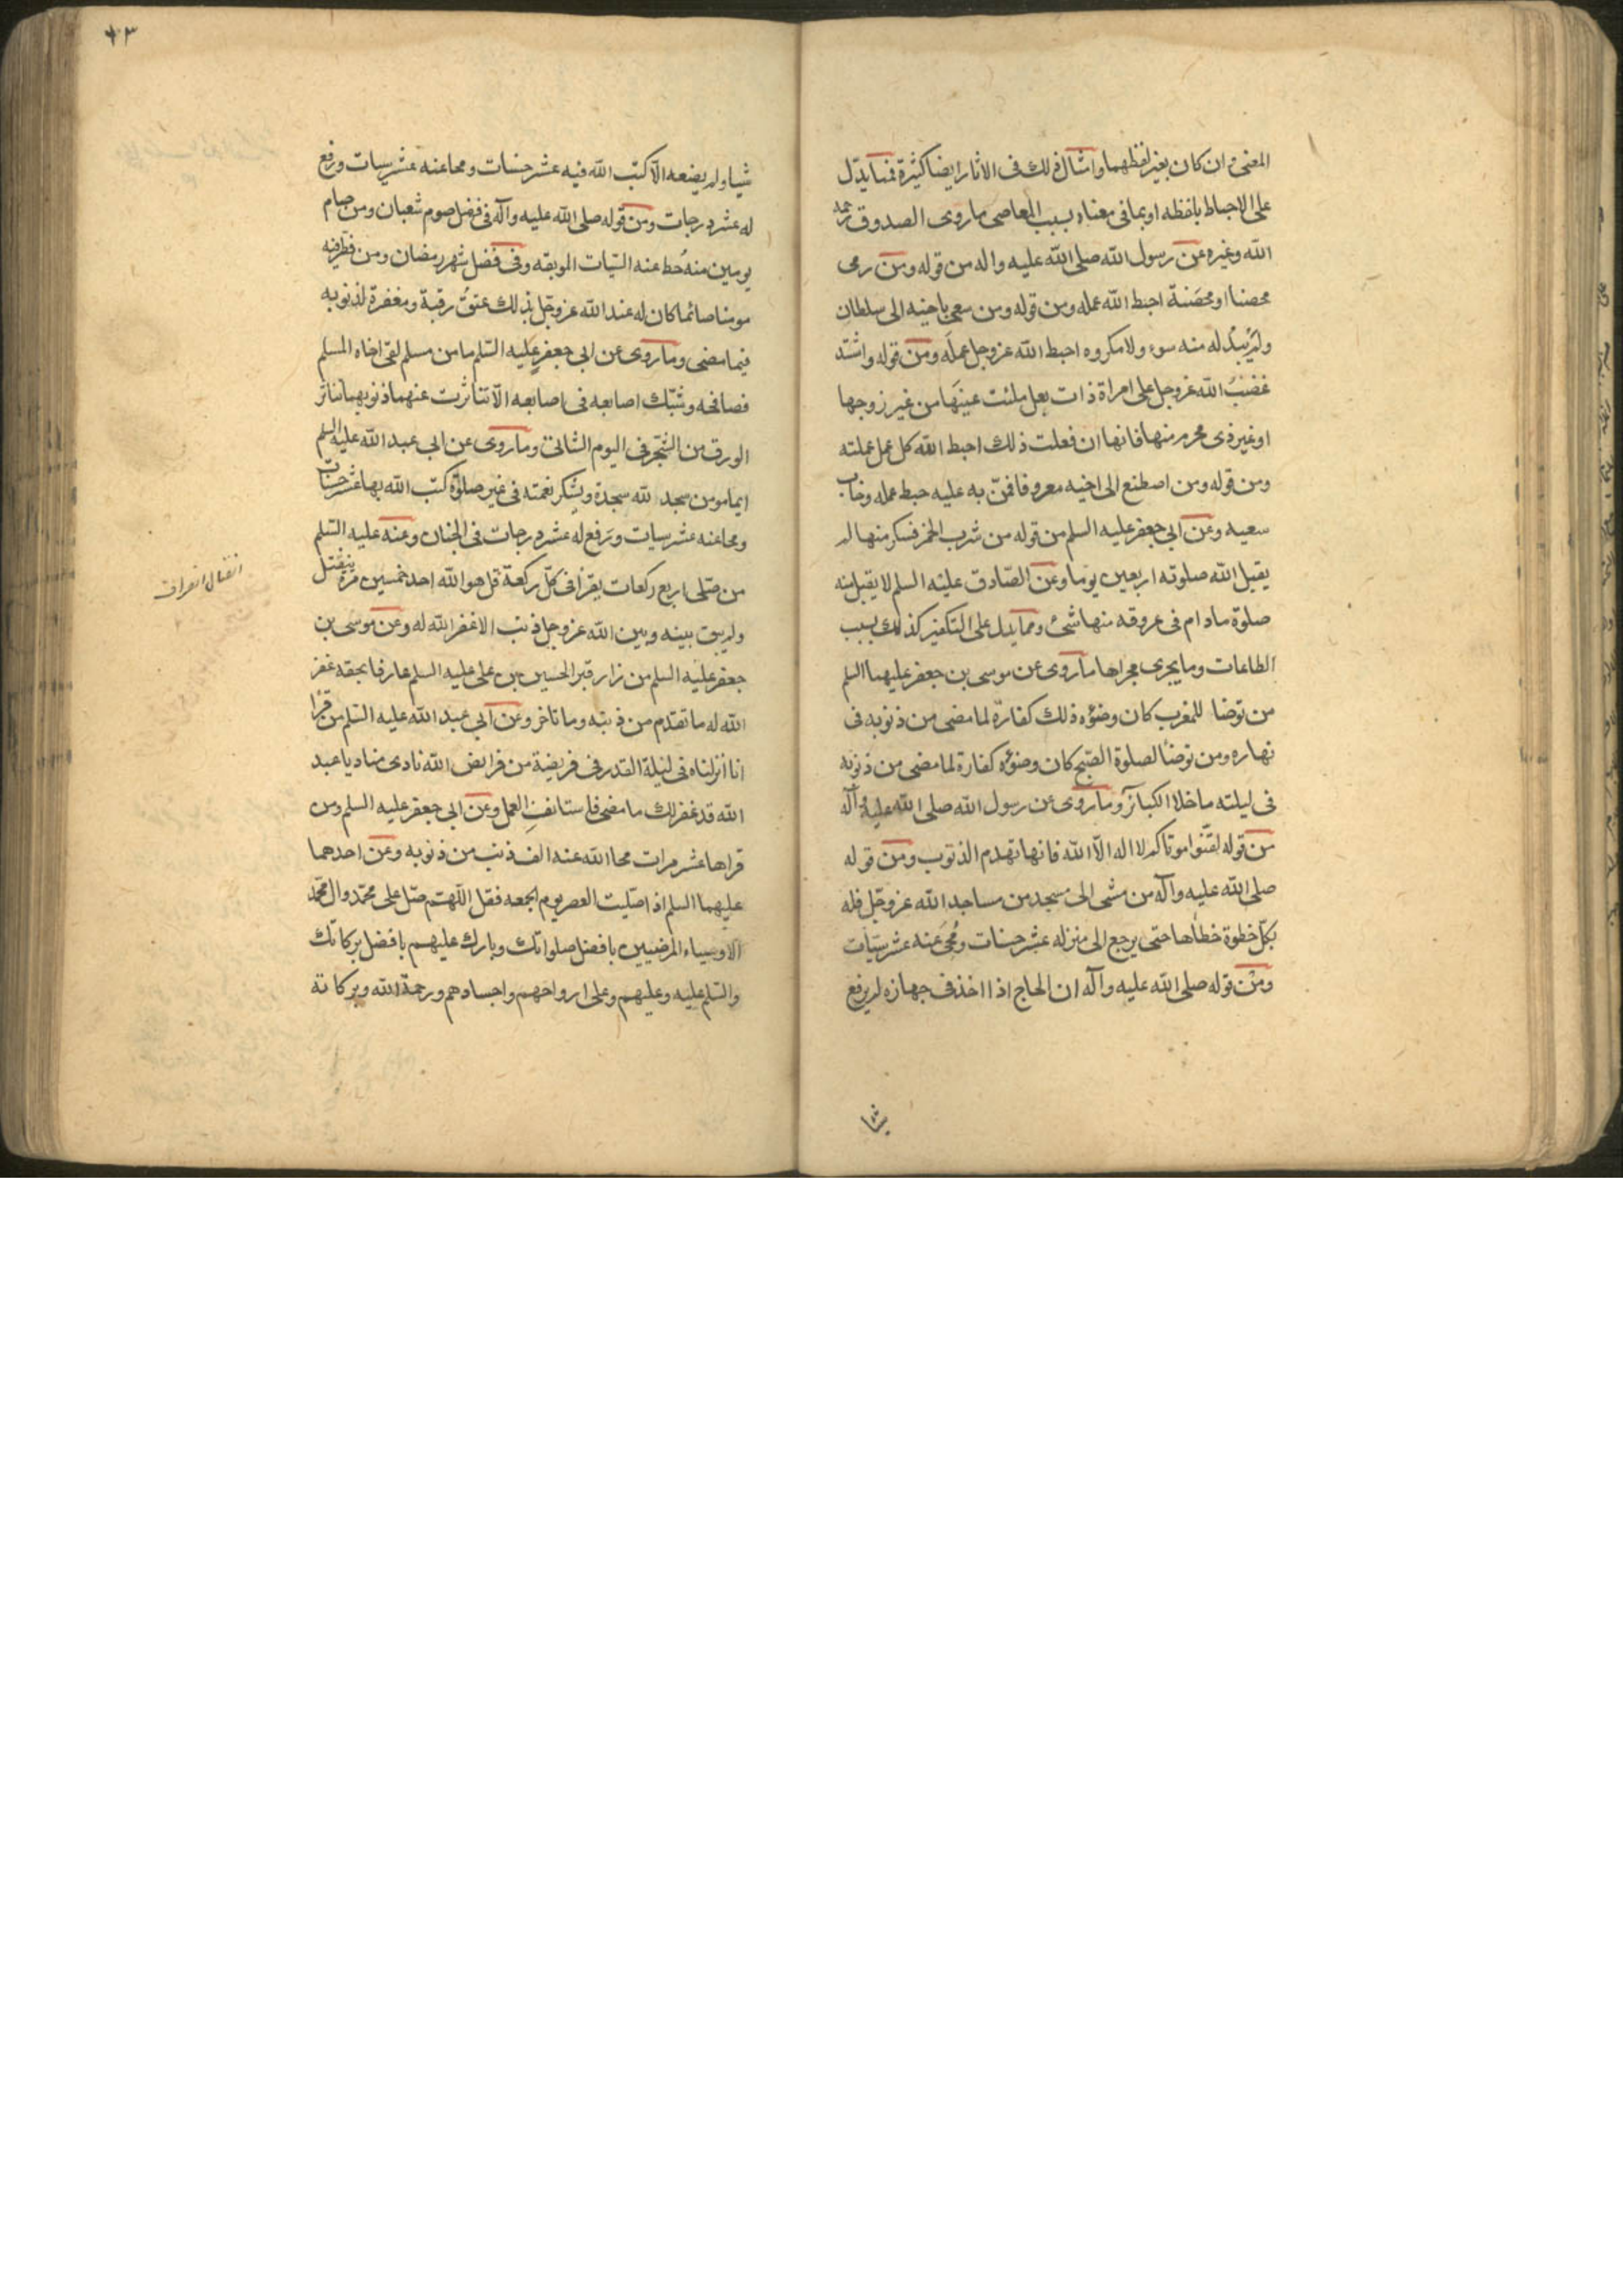 المعنى وان كان بغير لفظهما وامثال ذلك فى الاثار ايضا كثيرة فمما يدّل
على الاحباط بلفظه او بما فى معناه بسبب المعاصى ما روى الصدوق رحمه
الله وغيره عن رسول الله صلى الله عليه واله من قوله ومن رمى
محصنا او محصَنة احبط الله عمله ومن قوله ومن سعى باخيه الى سلطان
ولم يَبدُ له منه سوء ولا مكروه احبط الله عزوجل عمله ومن قوله واشتد
غضبُ الله عزوجل على امراة ذات بعل ملئت عينَها من غير زوجها
او غير ذى محرم منها فانها ان فعلت ذلك احبط الله كل عمل عملته
ومن قوله ومن اصطنع الى اخيه معروفا فامتنّ به عليه حبط عمله وخاب
سعيه وعن ابى جعفر عليه السلم من قوله من شرب الخمر فسكر منها لم
يقبل الله صلوته اربعين يوما وعن الصّادق عليه السلم لا يقبل منه
صلوة مادام فى عروقه منها شئ ومما يدل على التكفير كذلك بسبب
الطاعات وما يجرى مجراها ما روى عن موسى بن جعفر عليهما السلم
من توضا للمغرب كان وضؤه ذلك كفارة لما مضى من ذنوبه فى
نهاره ومن توضا لصلوة الصّبح كان وضؤه كفارة لما مضى من ذنوبه
فى ليلته ما خلا الكبائر وما روى عن رسول الله صلى الله عليه وآله
من قوله لقنّوا موتاكم لا اله الاّ الله فانها تهدم الذنوب ومن قوله
صلى الله عليه وآله من مشى الى مسجد من مساجد الله عزوجّل فله
بكلّ خطوة خطاها حتى يرجع الى منزله عشر حسنات ومُحِىَ عنه عشر سيّات
ومن قوله صلى الله عليه وآله ان الحاج اذا اخذ فى جهازه لم يرفع
شيا
٤٣
شيا ولم يضعه الاّ كتب الله فيه عشر حسنات ومحا عنه عشر سيات ورفع
له عشر درجات ومن قوله صلى الله عليه وآله فى فضل صوم شعبان ومن صام
يومين منه حُط عنه السّيات الموبقه وفى فضل شهر رمضان ومن فطّر فيه
مومنا صائما كان له عند الله عزوجّل بذلك عتقُ رقبة ومغفرة لذنوبه
فيما مضى وما روى عن ابى جعفر عليه السّلم ما من مسلم لقى اخاه المسلم
فصافحه وشبّك اصابعه فى اصابعه الاّ تناثرت عنهما ذنوبهما كما يتناثر
الورق من الشّجر فى اليوم الشاتى وما روى عن ابى عبد الله عليه السلم
ايما مومن سجد لله سجدة ويشكر نعمته فى غير صلوة كتب الله بها عشر حسنات
ومحا عنه عشر سيات ورَفع له عشر درجات فى الجنان وعنه عليه السّلم
من صّلى اربع ركعات يقرا فى كلّ ركعة قل هو الله احد خمسين مرة لم ينفتل
ولم يبق بينه وبين الله عزوجل ذنب الا غفر الله له وعن موسى بن
جعفر عليه السلم من زار قبر الحسين بن على عليه السلم عارفا بحقه غفر
الله له ما تقدم من ذنبه وما تاخر وعن ابى عبد الله عليه السّلم من قرا
انا انزلناه فى ليلة القدر فى فريضة من فرايض الله نادى مناد يا عبد
الله قد غفر لك ما مضى فاستانفِ العمل وعن ابى جعفر عليه السلم ومن
قراها عشر مرات محا الله عنه الف ذنب من ذنوبه وعن احدهما
عليهما السلم اذا صليت العصر يوم الجمعه فقل اللّهم صّل على محّمد وال محّمد
الاوصياء المرضيين بافضل صلواتك وبارك عليهم بافضل بركاتك
والسّلم عليه وعليهم وعلى ارواحهم واجسادهم ورحمة الله وبركاته
انفتال انصراف